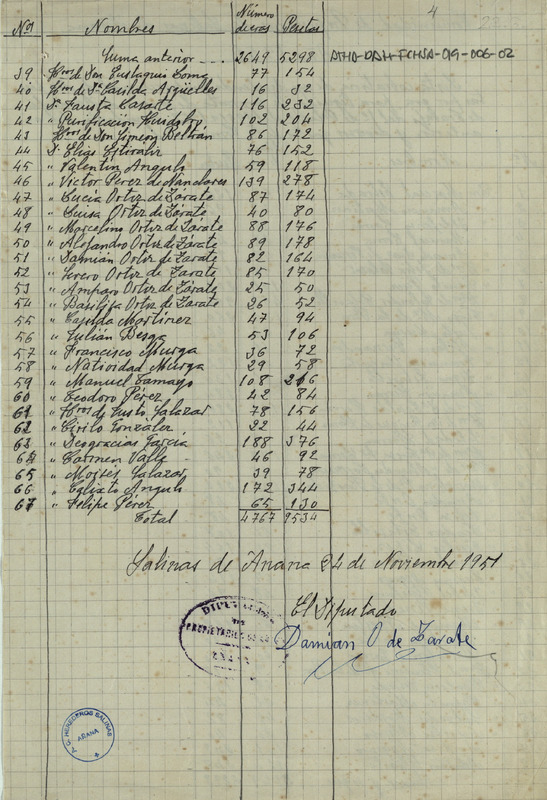 4
Nos Nombres Número de eras Pesetas
Suma anterior 2649 5298 ATHA-DAH-FCHSA-019-006-02
39 Hros de Don Eustaquio Loma 77 154
40 Hros de Dª Casilda Argüelles 16 32
41 Dª Fausta Casarte 116 232
42 " Purificación 102 204
43 Hros de Don Simeón Beltrán 86 172
44 D. Elías 76 152
45 " Valentín Angulo 59 118
46 " Victor Pérez de Nanclares 139 278
47 " Lucía Ortiz de Zárate 87 174
48 " Luisa Ortiz de Zárate 40 80
49 " Marcelino Ortiz de Zárate 88 176
50 " Alejandro Ortiz de Zárate 89 178
51 " Damián Ortiz de Zárate 82 164
52 " Severo Ortiz de Zarate 85 170
53 " Amparo Ortiz de Zárate 25 50
54 " Basilisa Ortiz de Zarate 26 52
55 " Casilda Martinez 47 94
56 " Julián Besga 53 106
57 " Francisco Murga 36 72
58 " Natividad Murga 29 58
59 " Manuel Tamayo 108 216
60 " Teodoro Pérez 42 84
61 " Hros de Justo Salazar 78 156
62 " Cirilo González 22 44
63 " Deogracias García 188 376
64 " Carmen Valle 46 92
65 " Moisés Salazar 39 78
66 " Calixto Angulo 172 344
67 " Felipe Pérez 65 130
Total 4767 9534
Salinas de Anana 24 de Noviembre 1951
El Diputado
Damian O de Zarate
PROPIETARIOS DE
G. HEREDEROS SALINAS
AÑANA